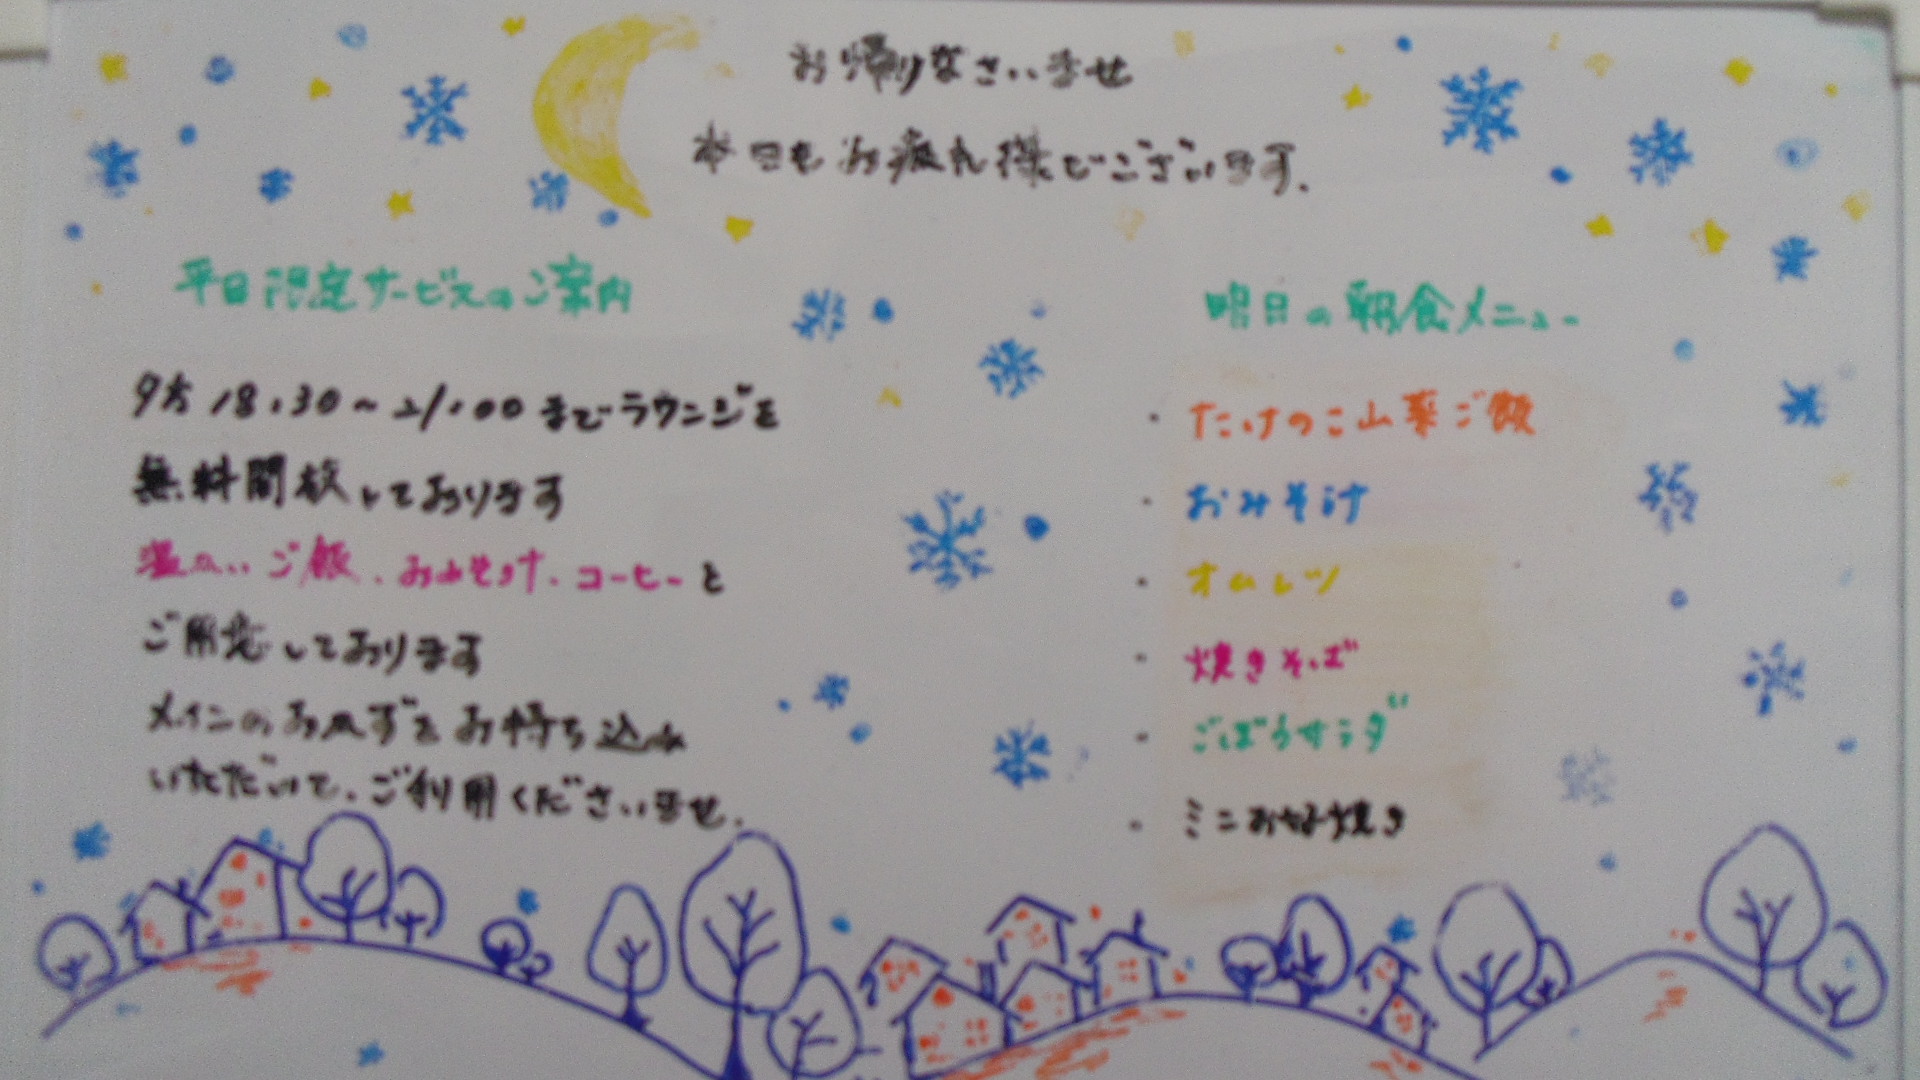 お帰りなさいませ
本日もお疲れ様でございます.
平日限定サービスのご案内
夕方 18:30～21:00までラウンジを
無料開放しております
温かいご飯、おみそ汁、コーヒーと
ご用意しております
メインのおかずをお持ち込み
いただいて、ご利用くださいませ.
明日の朝食メニュー
・たけのこ山菜ご飯
・おみそ汁
・オムレツ
・焼きそば
・ごぼうサラダ
・ミニお好焼き